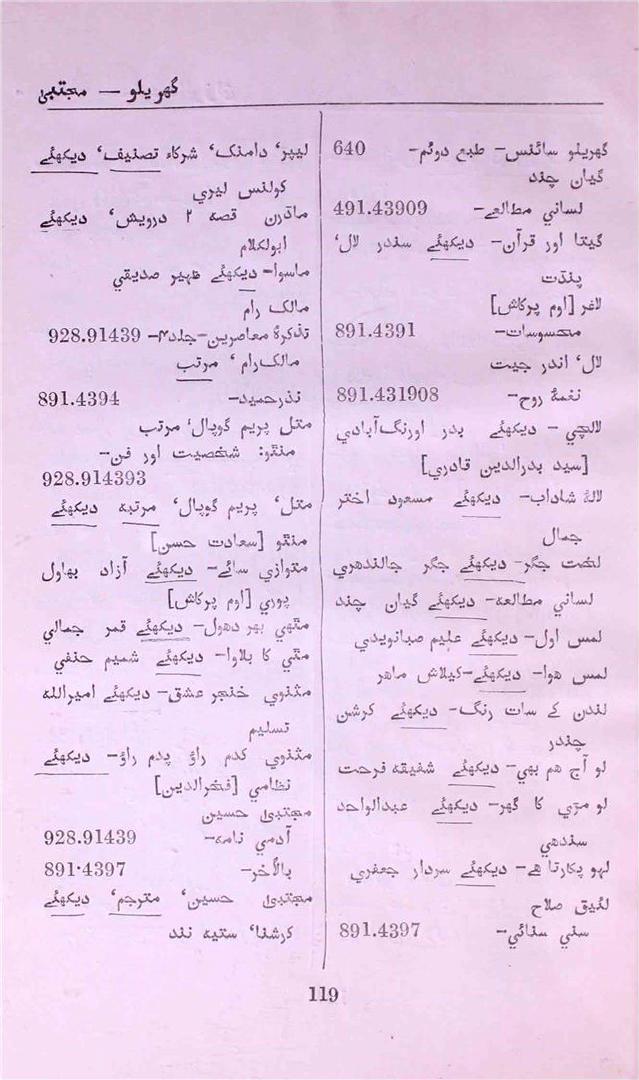 گھریلو — مجتبیٰ
گھریلو سائنس- طبع دوئم- 640
گیان چند
لسانی مطالعے- 491.43909
گیتا اور قرآن- دیکھئے سندر لال،
پنڈت
لاغر [اوم پرکاش]
محسوسات- 891.4391
لال، اندر جیت
نغمۂ روح- 891.431908
لالچی - دیکھئے بدر اورنگ‌آبادی
[سید بدرالدین قادری]
لالۂ شاداب- دیکھئے مسعود اختر
جمال
لخت جگر- دیکھئے جگر جالندھری
لسانی مطالعہ- دیکھئے گیان چند
لمس اول- دیکھئے علیم صبانویدی
لمس ھوا- دیکھئے-کیلاش ماھر
لندن کے سات رنگ- دیکھئے کرشن
چندر
لو آج ھم بھی- دیکھئے شفیقہ فرحت
لو مڑی کا گھر- دیکھئے عبدالواحد
سندھی
لہو پکارتا ھے- دیکھئے سردار جعفری
لئیق صلاح
سنی سنائی- 891.4397
لیپر، دامنک، شرکاء تصنیف، دیکھئے
کولنس لیری
ماڈرن قصہ ۲ درویش، دیکھئے
ابولکلام
ماسوا- دیکھئے ظہیر صدیقی
مالک رام
تذکرۂ معاصرین-جلد۴- 928.91439
مالک‌رام، مرتب
نذرحمید- 891.4394
متل پریم گوپال، مرتب
منٹو: شخصیت اور فن-
928.914393
متل، پریم گوپال، مرتبہ دیکھئے
منٹو [سعادت حسن]
متوازی سائے- دیکھئے آزاد بھاول
پوری [اوم پرکاش]
مٹھی بھر دھول- دیکھئے قمر جمالی
مٹی کا بلاوا- دیکھئے شمیم حنفی
مثنوی خنجر عشق- دیکھئے امیراللہ
تسلیم
مثنوی کدم راؤ پدم راؤ- دیکھئے
نظامی [فخرالدین]
مجتبیٰ حسین
آدمی نامہ- 928.91439
بالآخر- 891.4397
مجتبیٰ حسین، مترجم، دیکھئے
کرشنا، ستیہ نند
119